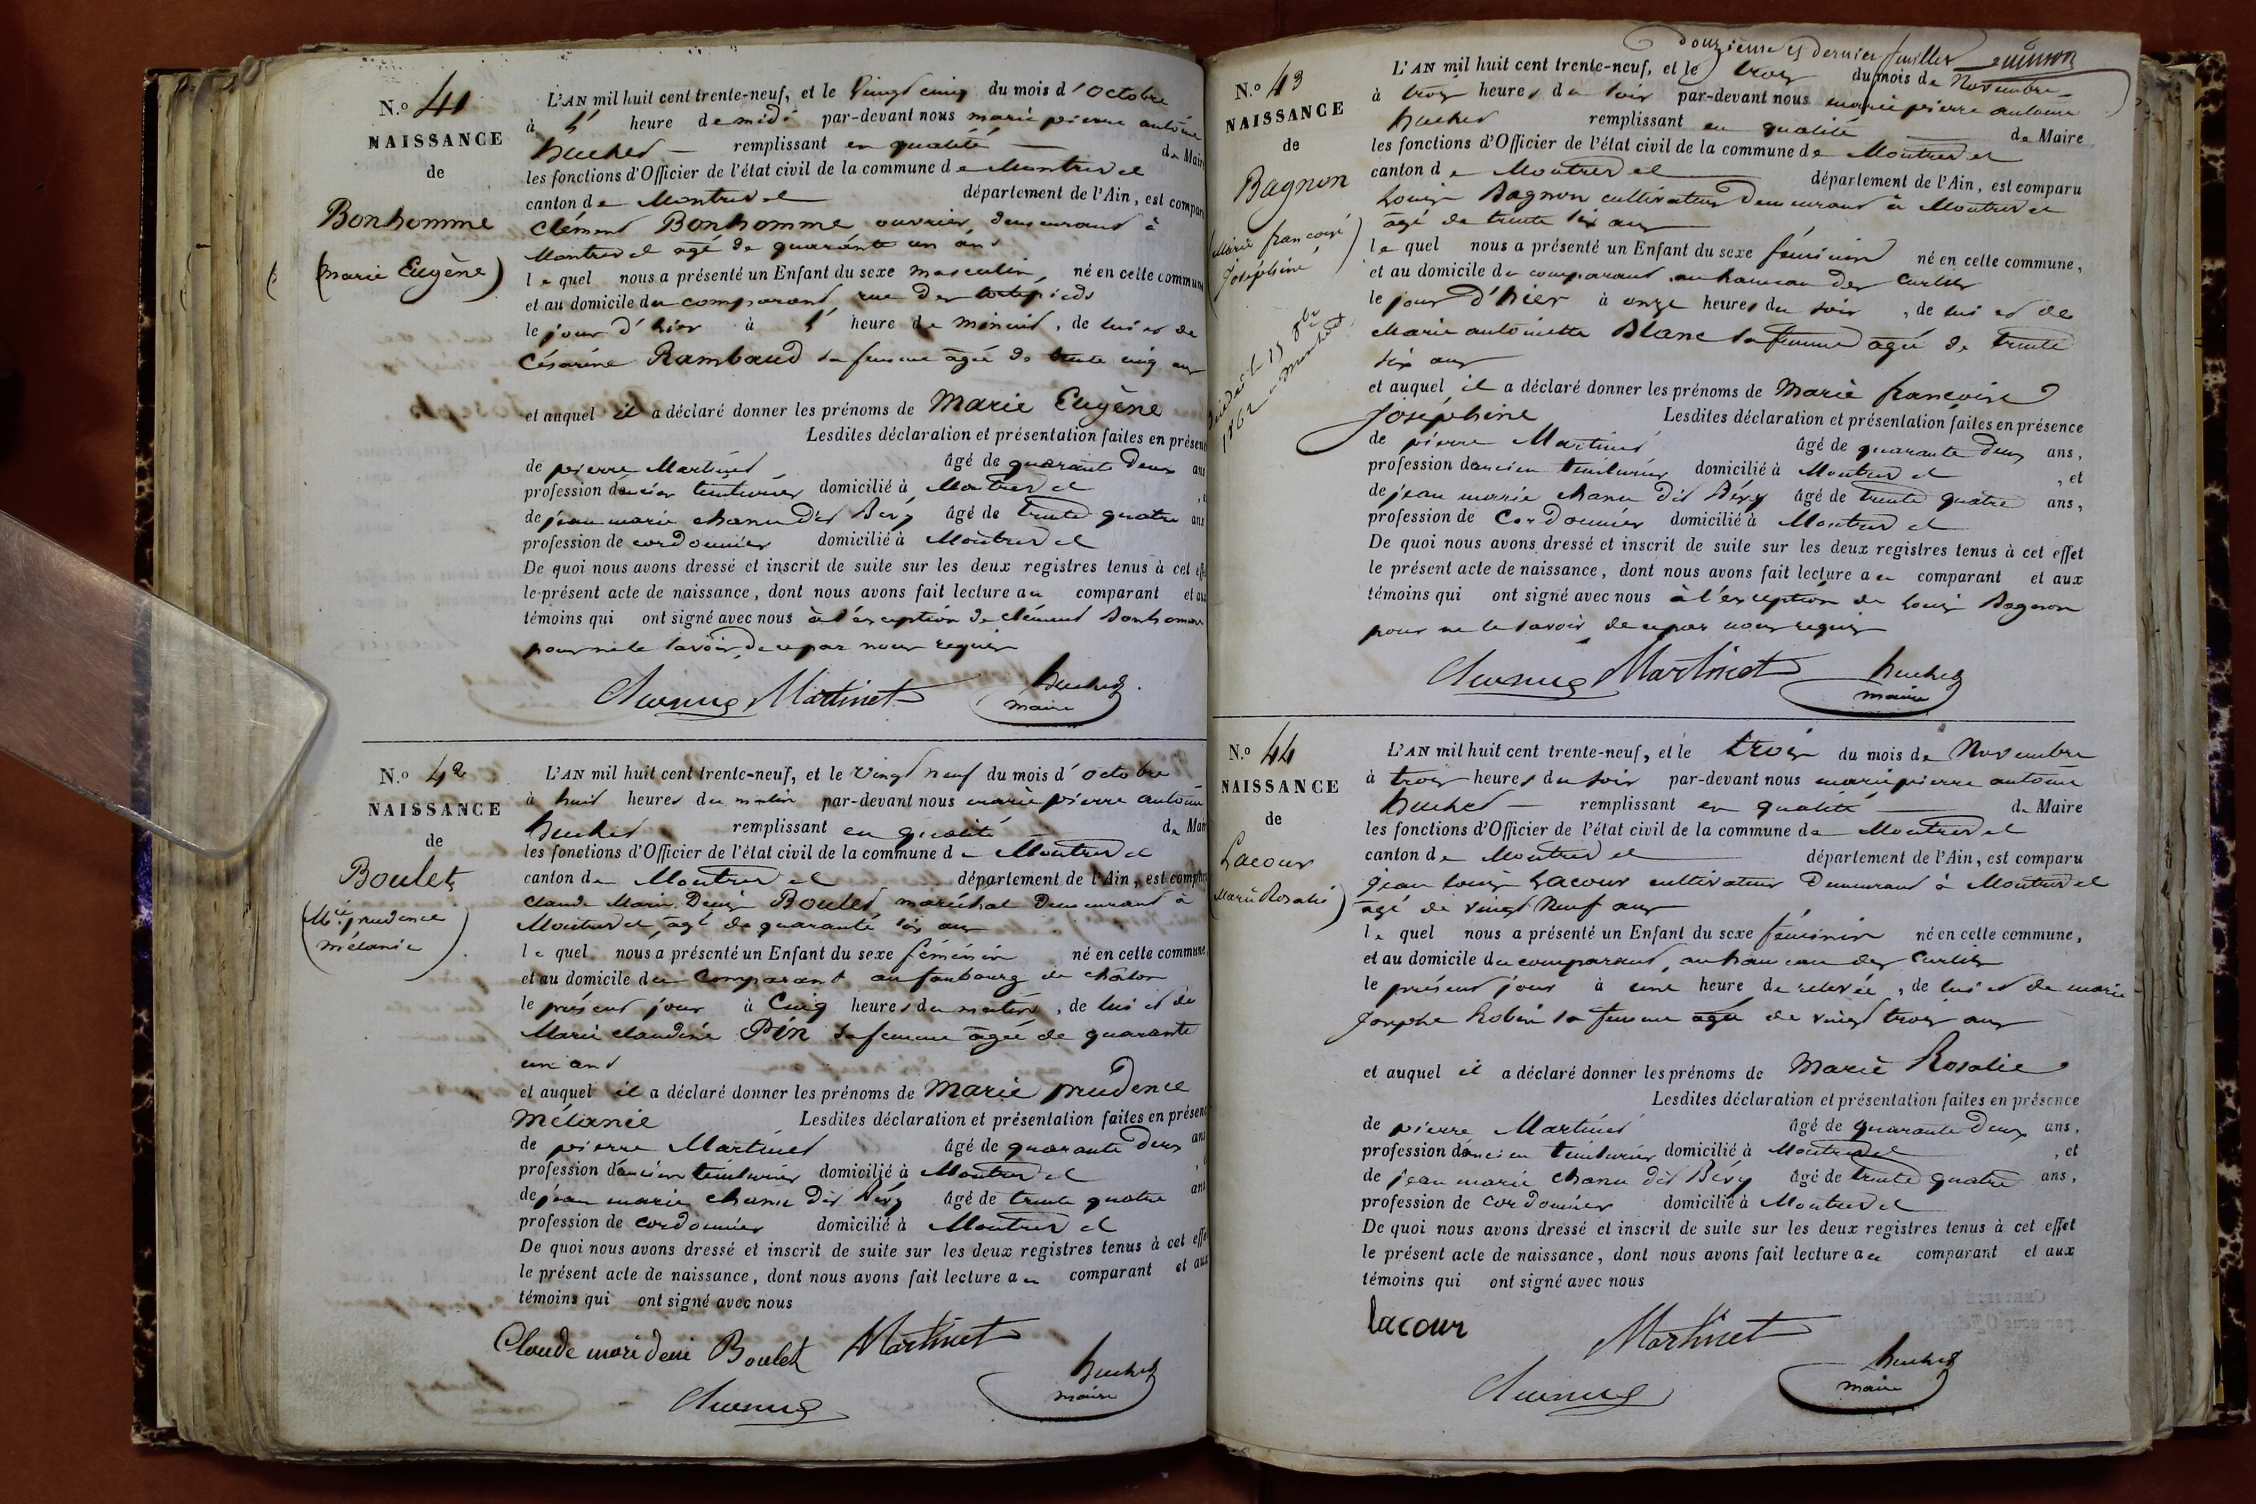 N.o 41
NAISSANCE
de
Bonhomme
(marie Eugène)
L'AN mil huit cent trente-neuf, et le vingt cinq du mois d'octobre
à heure de midi par-devant nous marie pierre antoine
huchet remplissant en qualité de Mair
les fonctions d'Officier de l'état civil de la commune de Montrevel
canton de Montrevel département de l'Ain, est compar
Clément Bonhomme ouvrier demeurant à
Montrevel agé de quarante un ans
lequel nous a présenté un Enfant du sexe masculin, né en cette commune
et au domicile du comparant rue des
le jour d'hier à heure de minuit, de lui et de
Césarine Rambaud sa femme agée de trente cinq ans
et auquel il a déclaré donner les prénoms de Marie Eugène
Lesdites déclaration et présentation faites en présenc
de pierre Martinet âgé de quarante deux ans
profession d'ancien teinturier domicilié à Montrevel
de jean marie chanu dit Bévy âgé de trente quatre ans
profession de cordonnier domicilié à Montrevel
De quoi nous avons dressé et inscrit de suite sur les deux registres tenus à cet effe
le présent acte de naissance, dont nous avons fait lecture au comparant et au
témoins qui ont signé avec nous à l'exception de clément Bonhomme
pour ne le savoir de ce par nous requis
Martinet huchet
maire
N.o 42
NAISSANCE
de
Boulet
(Mie prudence
mélanie)
L'AN mil huit cent trente-neuf, et le vingt neuf du mois d'octobre
à huit heures du matin par-devant nous marie pierre antoine
huchet remplissant en qualité de Mair
les fonctions d'Officier de l'état civil de la commune de Montrevel
canton de Montrevel département de l'Ain, est compar
Claude Marie Denis Boulet maréchal demeurant à
Montrevel, agé de quarante six ans
lequel nous a présenté un Enfant du sexe féminin né en cette commune,
et au domicile du comparant au faubourg de châlon
le présent jour à cinq heures du matin, de lui et de
Marie claudine Pin sa femme agée de quarante
un ans
et auquel il a déclaré donner les prénoms de Marie prudence
Mélanie Lesdites déclaration et présentation faites en présenc
de pierre Martinet âgé de quarante deux ans
profession d'ancien teinturier domicilié à Montrevel
de jean marie chanu dit Bévy âgé de trente quatre ans
profession de cordonnier domicilié à Montrevel
De quoi nous avons dressé et inscrit de suite sur les deux registres tenus à cet effe
le présent acte de naissance, dont nous avons fait lecture au comparant et aux
témoins qui ont signé avec nous
Claude mari deni Boulet Martinet
huchet
maire
douzieme et dernier feuillet
N.o 43
NAISSANCE
de
Bagnon
(Marie françoise
Joséphine)
1862
L'AN mil huit cent trente-neuf, et le trois du mois de Novembre
à trois heures du soir par-devant nous marie pierre antoine
huchet remplissant en qualité de Maire
les fonctions d'Officier de l'état civil de la commune de Montrevel
canton de Montrevel département de l'Ain, est comparu
Louis Bagnon cultivateur demeurant à Montrevel
agé de trente six ans
lequel nous a présenté un Enfant du sexe féminin né en cette commune,
et au domicile du comparant au hameau des Curtils
le jour d'hier à onze heures du soir, de lui et de
Marie antoinette Blanc sa femme agée de trente
six ans
et auquel il a déclaré donner les prénoms de Marie françoise
Joséphine Lesdites déclaration et présentation faites en présence
de pierre Martinet âgé de quarante deux ans,
profession d'ancien teinturier domicilié à Montrevel, et
de jean marie chanu dit Bévy âgé de trente quatre ans,
profession de cordonnier domicilié à Montrevel
De quoi nous avons dressé et inscrit de suite sur les deux registres tenus à cet effet
le présent acte de naissance, dont nous avons fait lecture au comparant et aux
témoins qui ont signé avec nous à l'exception de Louis Bagnon
pour ne le savoir de ce par nous requis
Martinet huchet
maire
N.o 44
NAISSANCE
de
Lacour
(Marie Rosalie)
L'AN mil huit cent trente-neuf, et le trois du mois de Novembre
à trois heures du soir par-devant nous marie pierre antoine
huchet remplissant en qualité de Maire
les fonctions d'Officier de l'état civil de la commune de Montrevel
canton de Montrevel département de l'Ain, est comparu
jean Louis Lacour cultivateur demeurant à Montrevel
agé de vingt neuf ans
lequel nous a présenté un Enfant du sexe féminin né en cette commune,
et au domicile du comparant, au hameau des Curtils
le présent jour à une heure de relevée, de lui et de marie
Josephe Robin sa femme agée de vingt trois ans
et auquel il a déclaré donner les prénoms de Marie Rosalie
Lesdites déclaration et présentation faites en présence
de pierre Martinet âgé de quarante deux ans,
profession d'ancien teinturier domicilié à Montrevel, et
de jean marie chanu dit Bévy âgé de trente quatre ans,
profession de cordonnier domicilié à Montrevel
De quoi nous avons dressé et inscrit de suite sur les deux registres tenus à cet effet
le présent acte de naissance, dont nous avons fait lecture au comparant et aux
témoins qui ont signé avec nous
lacour
Martinet
huchet
maire